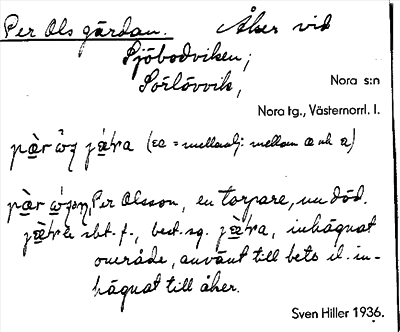 Per Ols gärdan. Åker vid
Sjöbodviken,
Sörlövvik,
Nora s:n
Nora tg., Västernorrl. l.
(ɛa = mellanlj. mellan æ och a)
Per Olsson, en torpare, nu död.
sbt. f., best. sg. inhägnat
område, använt till bete el. in-
hägnat till åker.
Sven Hiller 1936.